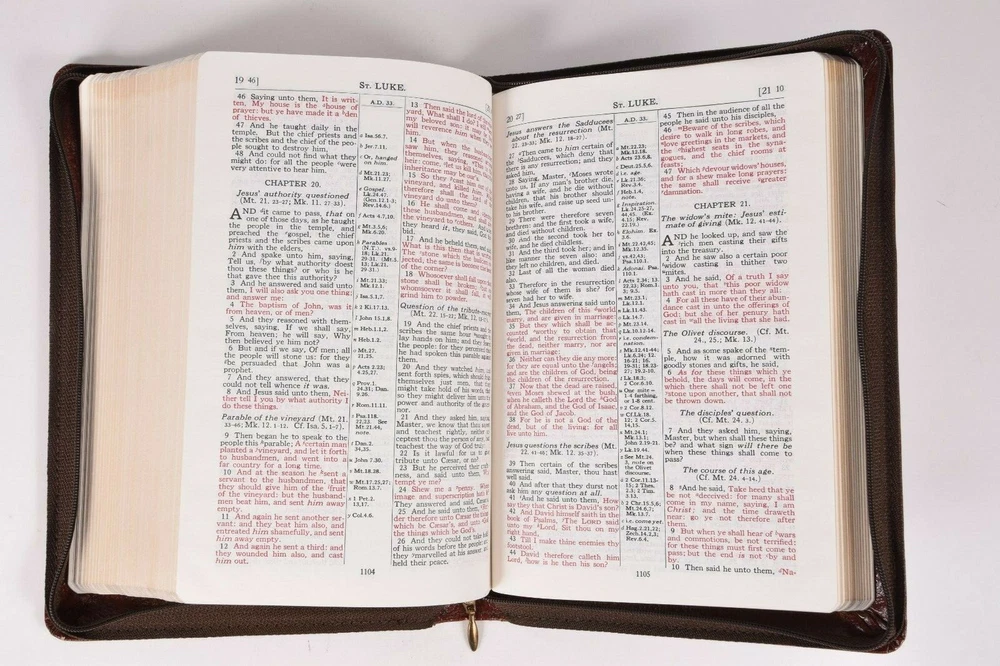 19 46]
St. LUKE.
46 Saying unto them, It is writ-
ten, My house is the house of
prayer: but ye have made it a den
of thieves.
47 And he taught daily in the
temple. But the chief priests and
the scribes and the chief of the peo-
ple sought to destroy him,
48 And could not find what they
might do: for all the people were
very attentive to hear him.
CHAPTER 20.
Jesus' authority questioned
(Mt. 21. 23-27; Mk. 11. 27-33).
AND it came to pass, that on
one of those days, as he taught
the people in the temple, and
preached the gospel, the chief
priests and the scribes came upon
him with the elders,
2 And spake unto him, saying,
Tell us, by what authority doest
thou these things? or who is he
that gave thee this authority?
3 And he answered and said unto
them, I will also ask you one thing;
and answer me:
4 The baptism of John, was it
from heaven, or of men?
5 And they reasoned with them-
selves, saying, If we shall say,
From heaven; he will say, Why
then believed ye him not?
6 But and if we say, Of men; all
the people will stone us: for they
be persuaded that John was a
prophet.
7 And they answered, that they
could not tell whence it was.
8 And Jesus said unto them, Nei-
ther tell I you by what authority I
do these things.
Parable of the vineyard (Mt. 21.
33-46; Mk. 12. 1-12. Cf. Isa. 5. 1-7).
9 Then began he to speak to the
people this parable; A certain man
planted a vineyard, and let it forth
to husbandmen, and went into a
far country for a long time.
10 And at the season he sent a
servant to the husbandmen, that
they should give him of the fruit
of the vineyard: but the husband-
men beat him, and sent him away
empty.
11 And again he sent another ser-
vant: and they beat him also, and
entreated him shamefully, and sent
him away empty.
12 And again he sent a third: and
they wounded him also, and cast
him out.
A.D. 33.
a Isa.56.7.
b Jer.7.11.
c Or, hanged
on him.
d Mt.21.23;
Mk.11.27.
e Gospel.
Lk.24.47.
(Gen.12.1-3;
Rev.14.6.)
f Acts 4.7,10.
g Mt.3.5,6;
Mk.6.20.
h Parables
(N.T.). vs.9-
18; Lk.21.
29-31. (Mt.5.
13; Lk.21.
29-31.)
i Mt.21.33;
Mk.12.1.
j Isa.5.1,7.
k 2 Ki.17.13.
l John 15.1,8.
m Heb.1.1,2.
n Heb.1.2.
o Mt.27.
21,25.
p Acts 2.23;
4.25,27.
q Prov.1.
24,31; Dan.
9.26.
r Rom.11.11.
s Psa.118.
22,23. See
Mt.21.44,
note.
t Dan.2.
34,35.
u John 7.30.
v Mt.18.28.
w Mt.17.25,27;
Rom.13.7.
x 1 Pet.2.
13,17.
y Col.4.6.
13 Then said the lord of
yard, What shall I do? I
my beloved son: it may
will reverence him when
him.
14 But when the
saw him, they reasoned
themselves, saying, This
heir: come, let us kill him,
inheritance may be
15 So they cast him out
vineyard, and killed him.
therefore shall the lord of
vineyard do unto them?
16 He shall come and
these husbandmen, and
the vineyard to others. And
they heard it, they said,
bid.
17 And he beheld them, and
What is this then that is
The stone which the builders
jected, the same is become the
of the corner?
18 Whosoever shall fall upon
stone shall be broken; but on
whomsoever it shall fall, it will
grind him to powder.
Question of the tribute-money
(Mt. 22. 15-22; Mk. 12. 13-17).
19 And the chief priests and the
scribes the same hour sought to
lay hands on him; and they feared
the people: for they perceived that
he had spoken this parable against
them.
20 And they watched him, and
sent forth spies, which should feign
themselves just men, that they
might take hold of his words, that
so they might deliver him unto the
power and authority of the gover-
nor.
21 And they asked him, saying,
Master, we know that thou sayest
and teachest rightly, neither ac-
ceptest thou the person of any, but
teachest the way of God truly:
22 Is it lawful for us to give
tribute unto Cæsar, or no?
23 But he perceived their crafti-
ness, and said unto them, Why
tempt ye me?
24 Shew me a penny. Whose
image and superscription hath it?
They answered and said, Cæsar's.
25 And he said unto them, Ren-
der therefore unto Cæsar the things
which be Cæsar's, and unto God
the things which be God's.
26 And they could not take hold
of his words before the people: and
they marvelled at his answer, and
held their peace.
1104
20 27]
St. LUKE.
[21 10
Jesus answers the Sadducees
about the resurrection (Mt.
22. 23-33; Mk. 12. 18-27).
27 Then came to him certain of
the Sadducees, which deny that
there is any resurrection; and they
asked him,
28 Saying, Master, Moses wrote
unto us, If any man's brother die,
having a wife, and he die without
children, that his brother should
take his wife, and raise up seed un-
to his brother.
29 There were therefore seven
brethren: and the first took a wife,
and died without children.
30 And the second took her to
wife, and he died childless.
31 And the third took her; and in
like manner the seven also: and
they left no children, and died.
32 Last of all the woman died
also.
33 Therefore in the resurrection
whose wife of them is she? for
seven had her to wife.
34 And Jesus answering said unto
them, The children of this world
marry, and are given in marriage:
35 But they which shall be ac-
counted worthy to obtain that
world, and the resurrection from
the dead, neither marry, nor are
given in marriage:
36 Neither can they die any more:
for they are equal unto the angels;
and are the children of God, being
the children of the resurrection.
37 Now that the dead are raised,
even Moses shewed at the bush,
when he calleth the Lord the God
of Abraham, and the God of Isaac,
and the God of Jacob.
38 For he is not a God of the
dead, but of the living: for all
live unto him.
Jesus questions the scribes (Mt.
22. 41-46; Mk. 12. 35-37).
39 Then certain of the scribes
answering said, Master, thou hast
well said.
40 And after that they durst not
ask him any question at all.
41 And he said unto them, How
say they that Christ is David's son?
42 And David himself saith in the
book of Psalms, The LORD said
unto my Lord, Sit thou on my
right hand,
43 Till I make thine enemies thy
footstool.
44 David therefore calleth him
Lord, how is he then his son?
A.D. 33.
a Mt.22.23;
Mk.12.18.
b Acts 23.6,8.
c Deut.25.5,6.
d i.e. age.
e Lk.21.36;
Rev.3.4.
f Heb.1.4,
note.
g Inspiration.
Lk.24.25-27,
44,45. (Ex.
4.15; Rev.
22.19.)
h Elohim. Ex.
3.6.
i Mt.22.42,45;
Mk.12.35.
j vs.42,43;
Psa.110.1.
k Adonai. Psa.
110.1.
l Acts 2.34; 13.
22,23; Rom.1.
3; 9.5.
m Mt.23.1;
Lk.12.1.
n Lk.11.43.
o Lk.14.7.
p Mt.23.14.
q Lk.10.12-14.
r i.e. condem-
nation.
s Mk.12.41-44;
Lk.6.24; 12.
16-21; 16.
19-31; 18.23-
27; 19.2-10.
t Lk.18.3.
u 2 Cor.6.10.
v One mite =
1-4 farthing,
or 1-8 cent.
w 2 Cor.8.12.
x Cf.Lk.18.
12; 2 Cor.5.
14,15.
y Mt.24.1;
Mk.13.1;
John 2.19-21.
z Lk.19.44.
a See Mt.24.
3, note on
the Olivet
discourse.
b 2 Cor.11.13-
15; 2 Thes.
2.3; 2 Tim.
3.13.
c i.e. come yet.
d Hag.2.21,22;
Zech.14.2,3;
Rev.6.4.
45 Then in the audience of all the
people he said unto his disciples,
46 Beware of the scribes, which
desire to walk in long robes, and
love greetings in the markets, and
the highest seats in the syna-
gogues, and the chief rooms at
feasts;
47 Which devour widows' houses,
and for a shew make long prayers:
the same shall receive greater
damnation.
CHAPTER 21.
The widow's mite: Jesus' esti-
mate of giving (Mk. 12. 41-44).
AND he looked up, and saw the
rich men casting their gifts
into the treasury.
2 And he saw also a certain poor
widow casting in thither two
mites.
3 And he said, Of a truth I say
unto you, that this poor widow
hath cast in more than they all:
4 For all these have of their abun-
dance cast in unto the offerings of
God: but she of her penury hath
cast in all the living that she had.
The Olivet discourse. (Cf. Mt.
24., 25.; Mk. 13.)
5 And as some spake of the tem-
ple, how it was adorned with
goodly stones and gifts, he said,
6 As for these things which ye
behold, the days will come, in the
which there shall not be left one
stone upon another, that shall not
be thrown down.
The disciples' question.
(Cf. Mt. 24. 3.)
7 And they asked him, saying,
Master, but when shall these things
be? and what sign will there be
when these things shall come to
pass?
The course of this age.
(Cf. Mt. 24. 4-14.)
8 And he said, Take heed that ye
be not deceived: for many shall
come in my name, saying, I am
Christ; and the time draweth
near: go ye not therefore after
them.
9 But when ye shall hear of wars
and commotions, be not terrified:
for these things must first come to
pass; but the end is not by and
by.
10 Then said he unto them, Na-
1105